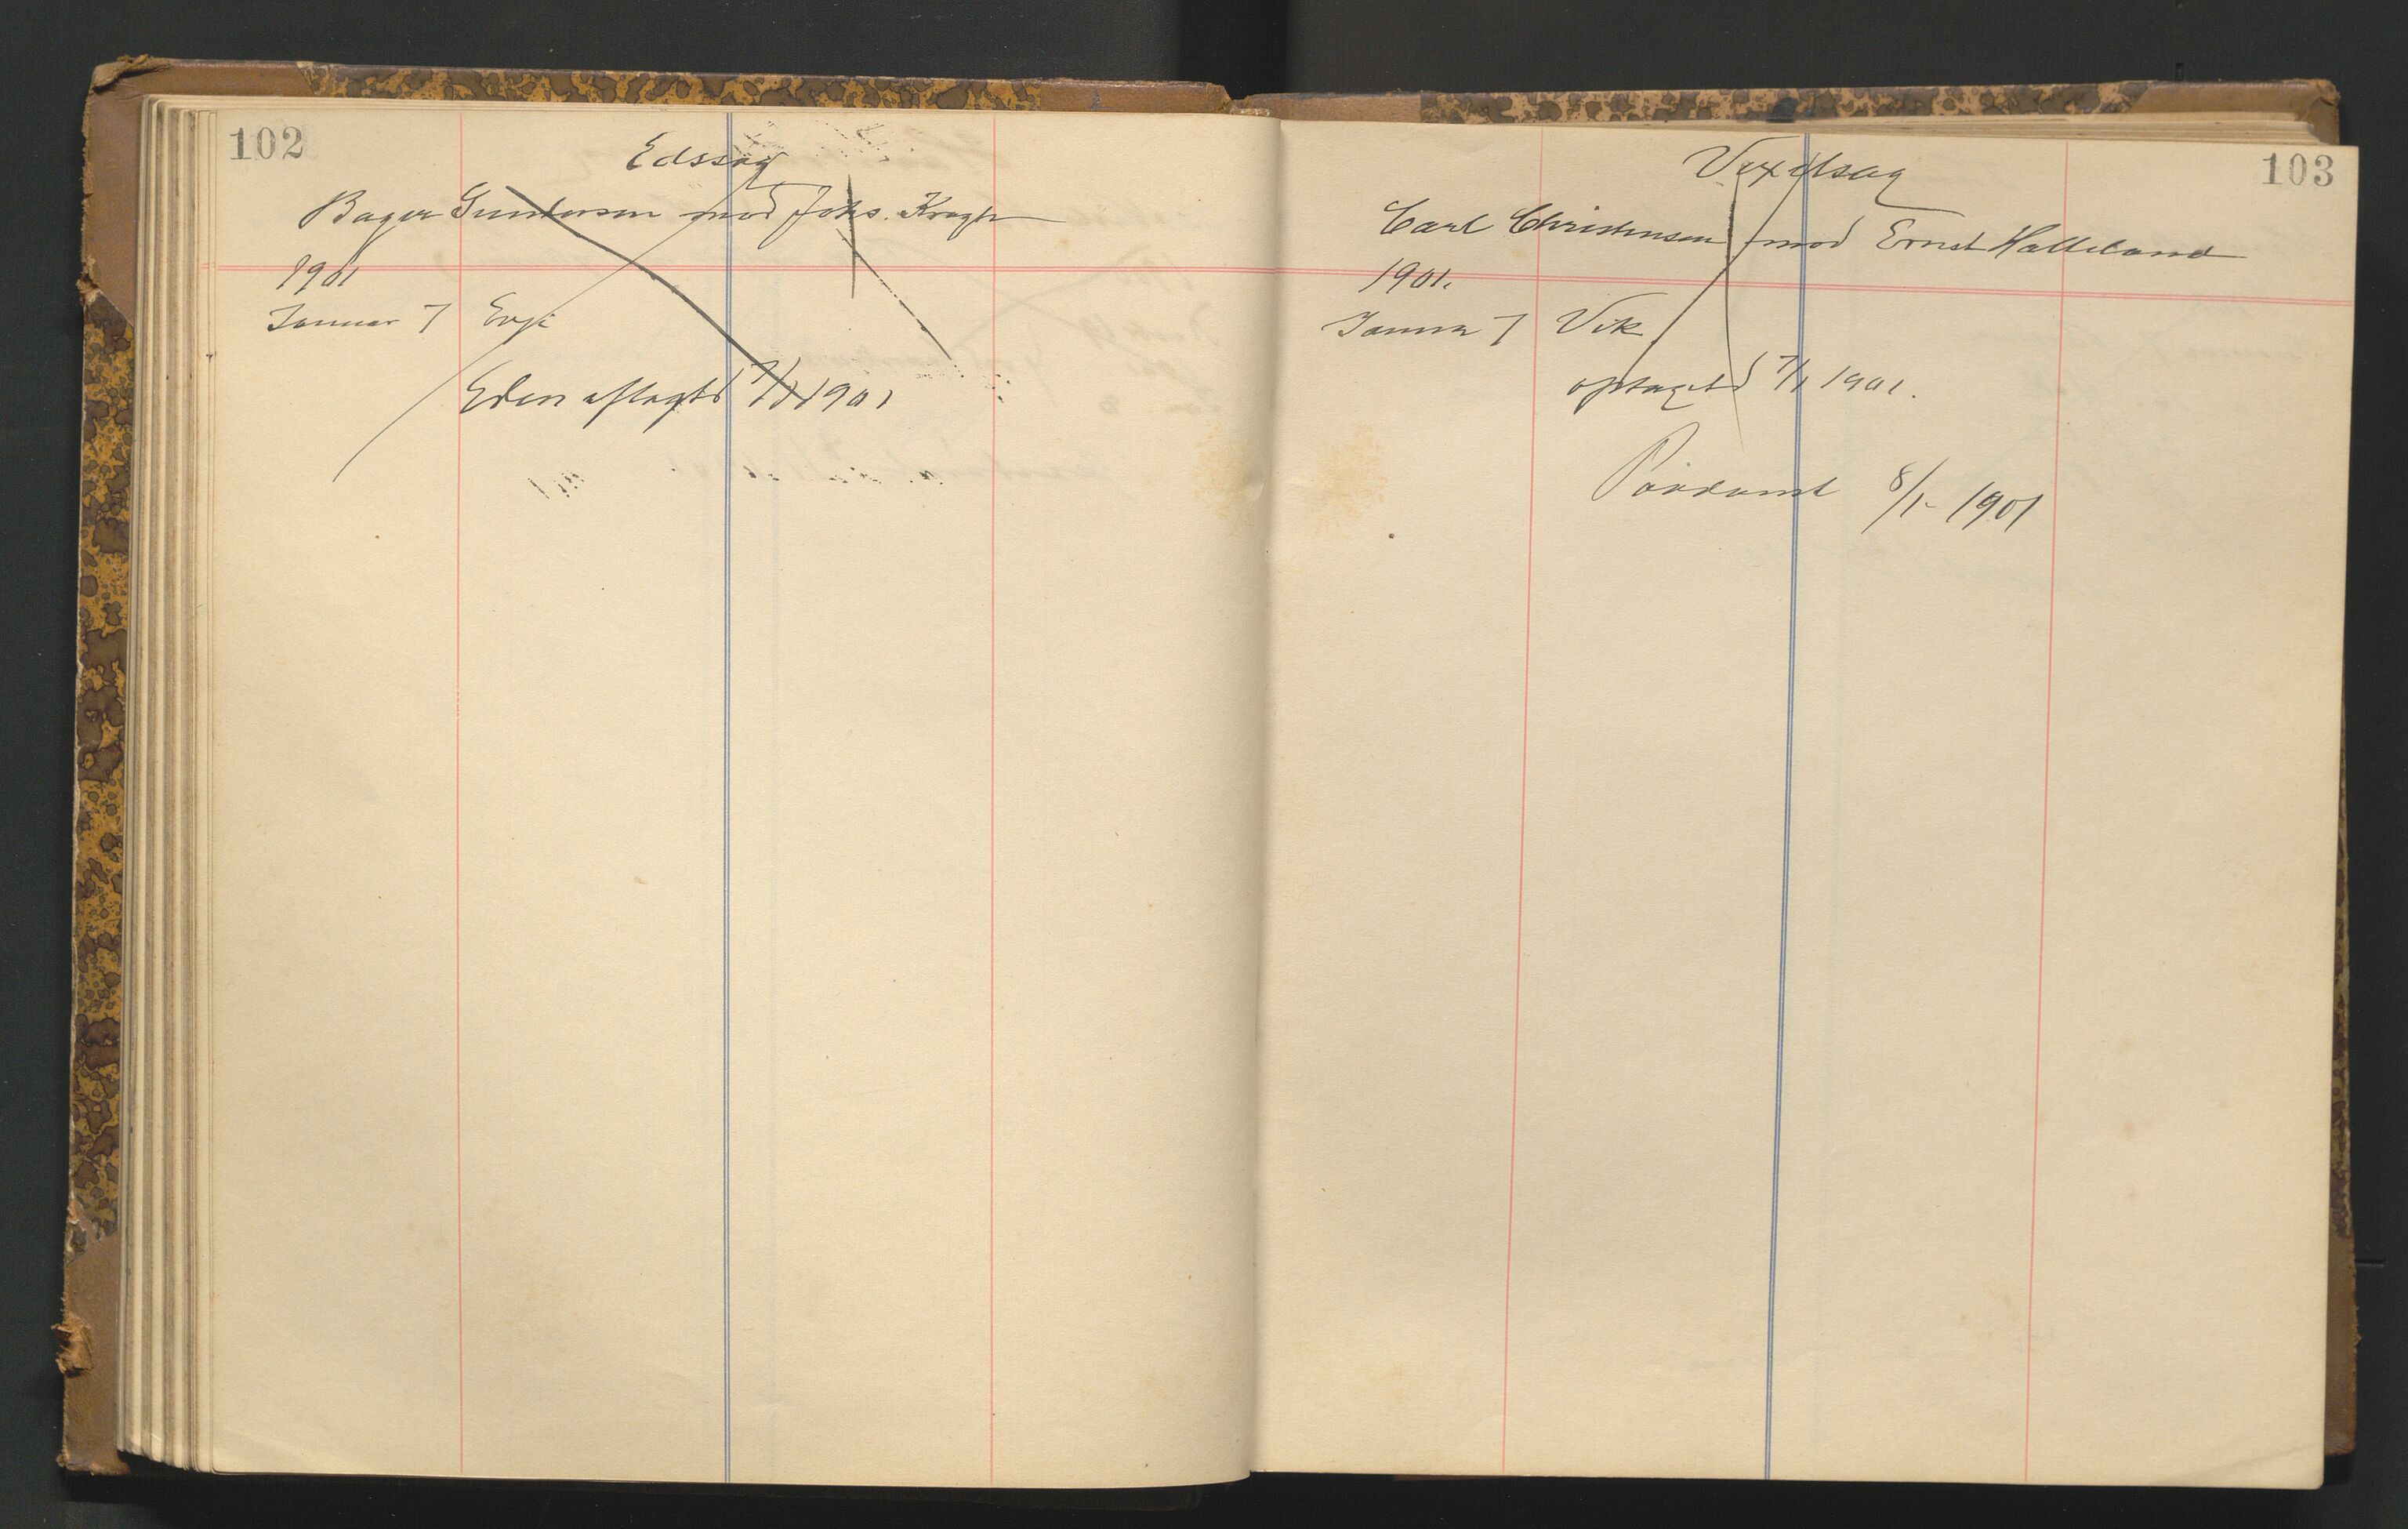 102
Edssag
Bager Gundersen mod Johs. Kragh
1901
Januar 7 Evje
Eden aflagt 7/1 1901
103
Vexelsag
Carl Christensen mod Ernst Halleland
1901.
Januar 7 Vik
optaget 7/1 1901.
Paadømt 8/1 - 1901